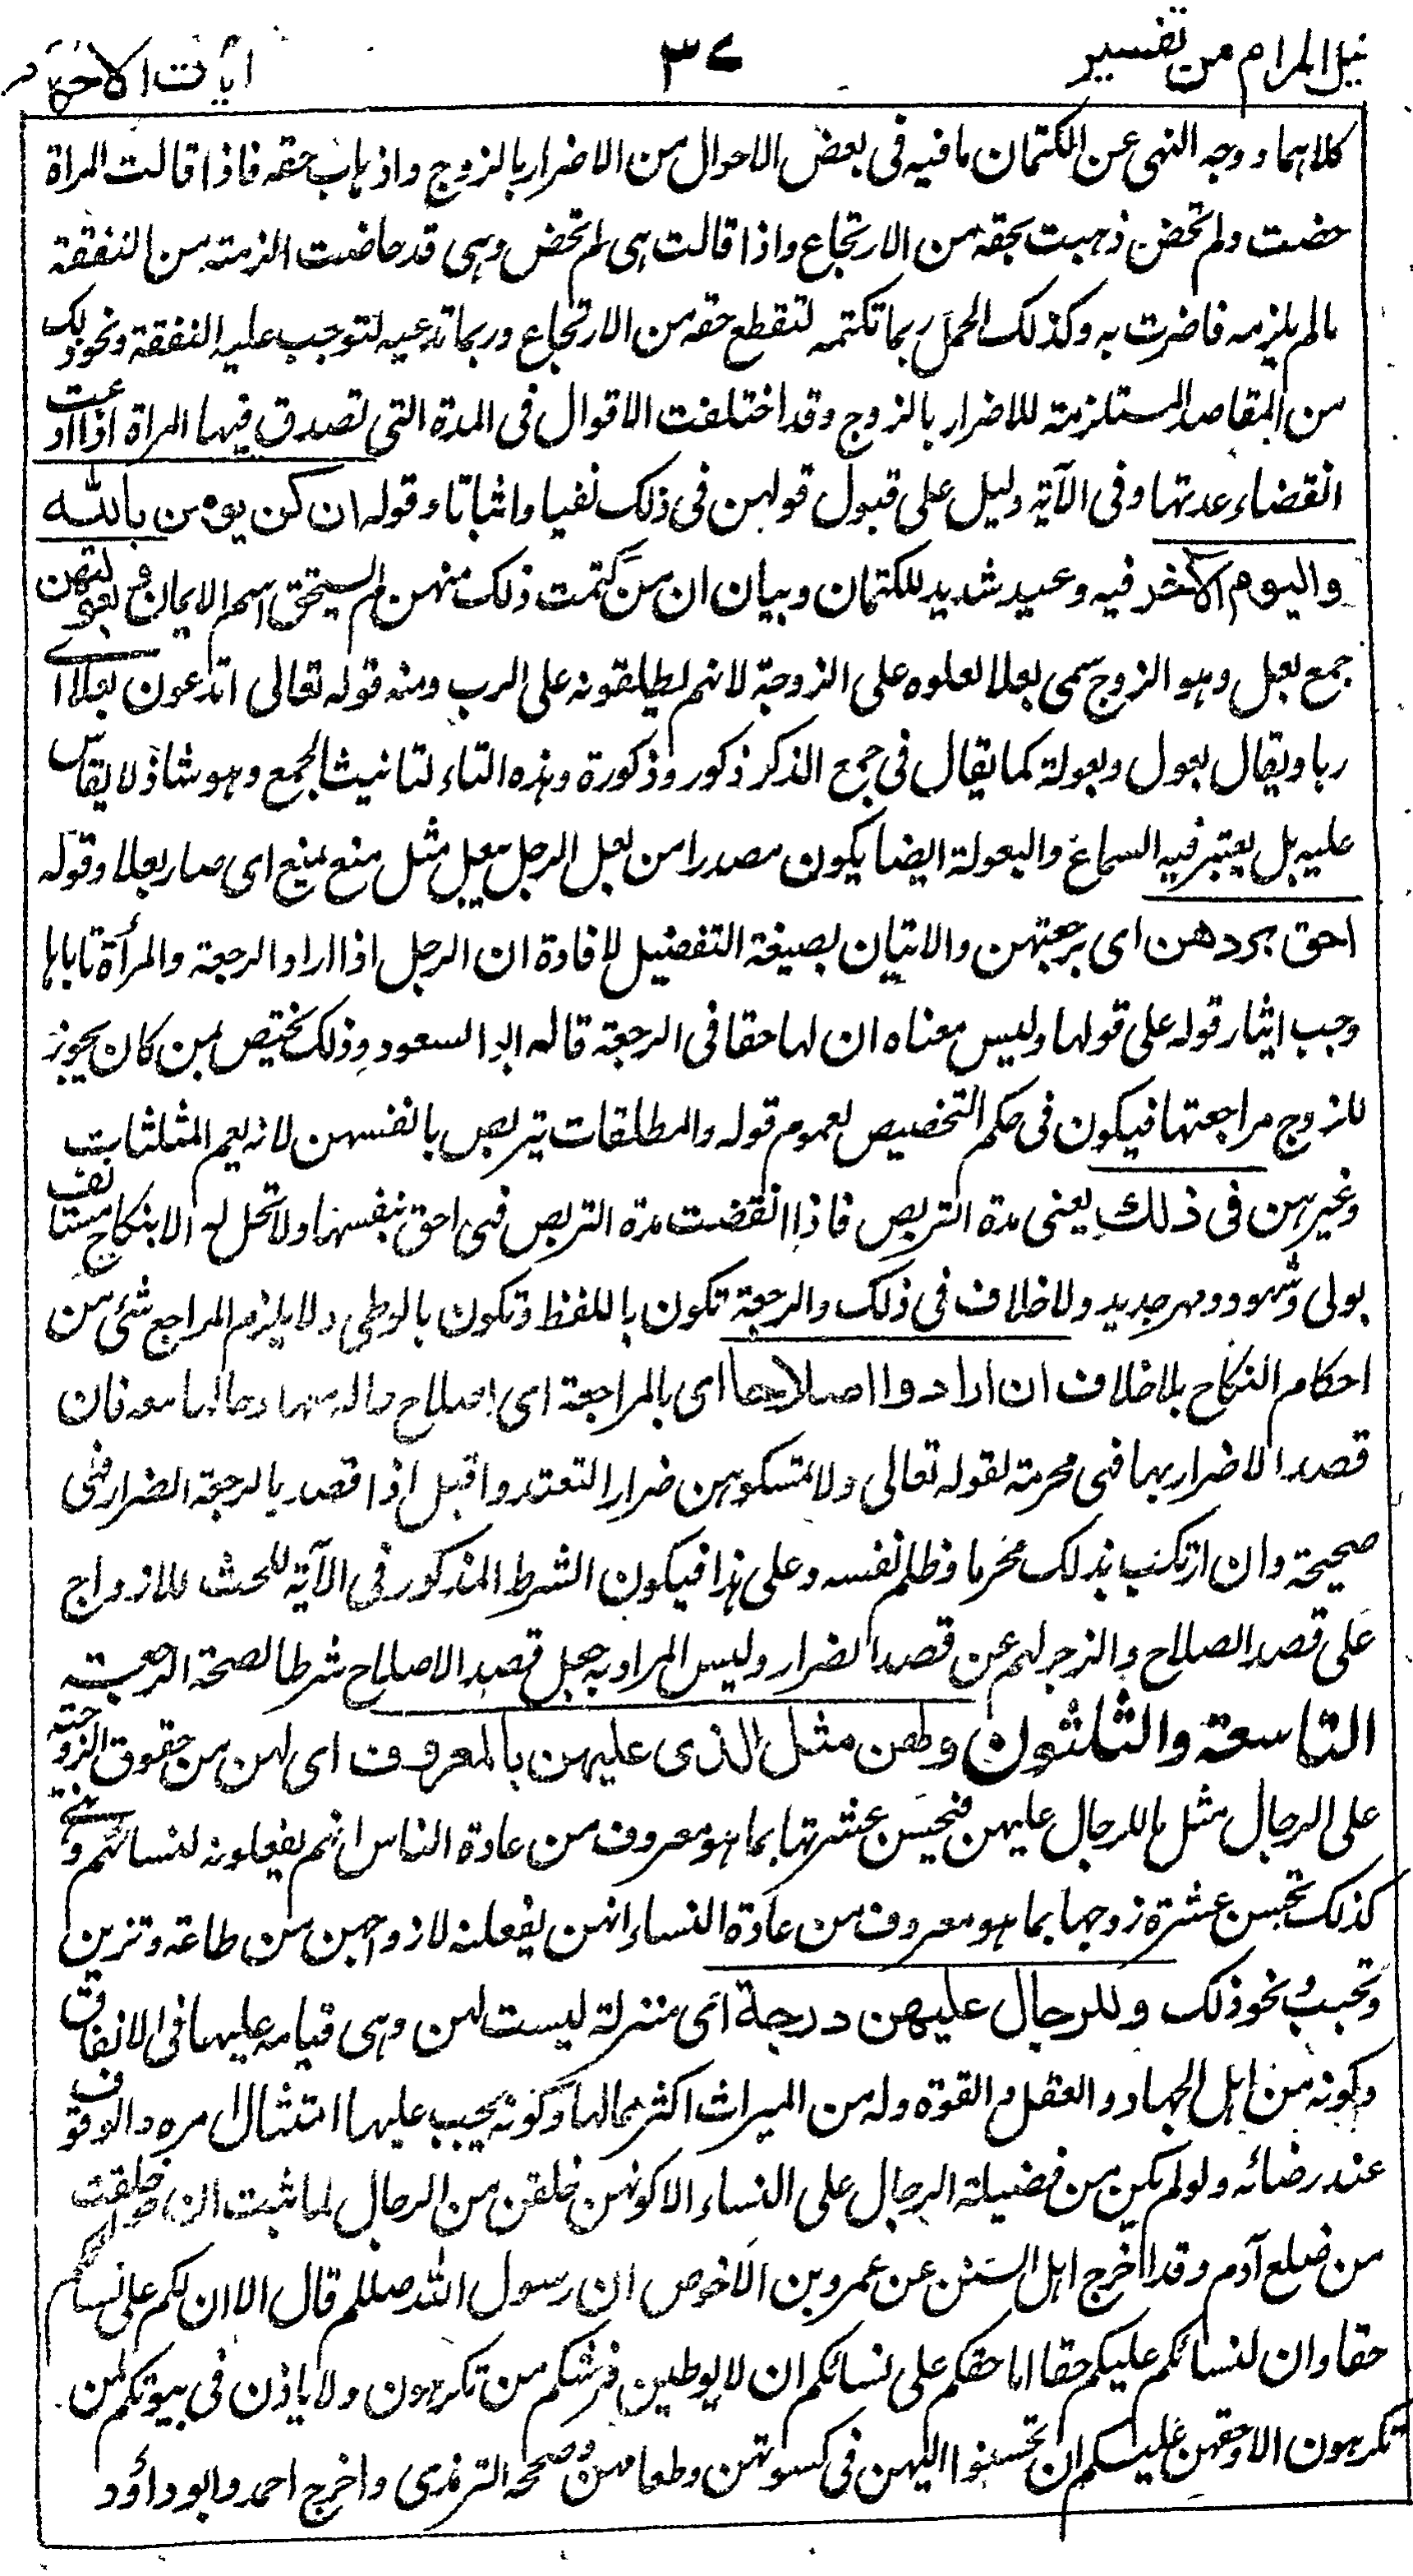 نيل المرام من تفسير ٣٧ آيات الاحكام
كلاهما ووجه النهي عن الكتمان ما فيه في بعض الاحوال من الاضرار بالزوج واذهاب حقه فاذا قالت المراة
حضت ولم تحض ذهبت بحقه من الارتجاع واذا قالت هي لم تحض وهي قد حاضت الزمته من النفقة
مالم يلزمه فاضرت به وكذلك الحمل ربما تكتمه لتقطع حقه من الارتجاع وربما تدعيه لتوجب عليه النفقة ونحو ذلك
من المقاصد المستلزمة للاضرار بالزوج وقد اختلفت الاقوال في المدة التي تصدق فيها المراة اذا ادعت
انقضاء عدتها وفي الآية دليل على قبول قولهن في ذلك نفيا واثباتا وقوله ان كن يؤمن بالله
واليوم الآخر فيه وعيد شديد للكتمان وبيان ان من كتمت ذلك منهن لم يستحق اسم الايمان وبعولتهن
جمع بعل وهو الزوج سمى بعلا لعلوه على الزوجة لانهم يطلقونه على الرب ومنه قوله تعالى اتدعون بعلا اي
ربا ويقال بعول وبعولة كما يقال في جمع الذكر ذكور وذكورة وهذه التاء لتانيث الجمع وهو شاذ لا يقاس
عليه بل يعتبر فيه السماع والبعولة ايضا يكون مصدرا من بعل الرجل يبعل مثل منع يمنع اى صار بعلا وقوله
احق بردهن اى برجعتهن والاتيان بصيغة التفضيل لافادة ان الرجل اذا اراد الرجعة والمرأة تاباها
وجب ايثار قوله على قولها وليس معناه ان لها حقا في الرجعة قاله ابو السعود وذلك يختص بمن كان يجوز
للزوج مراجعتها فيكون في حكم التخصيص لعموم قوله والمطلقات يتربصن بانفسهن لانه يعم المثلثات
وغيرهن في ذلك يعنى مدة التربص فاذا انقضت مدة التربص فهي احق بنفسها ولا تحل له الا بنكاح مستانف
بولى وشهود ومهر جديد ولا خلاف في ذلك والرجعة تكون باللفظ وتكون بالوطى ولا يلزم المراجع شئ من
احكام النكاح بلا خلاف ان ارادوا اصلاحا اى بالمراجعة اى اصلاح حاله معها وحالها معه فان
قصد الاضرار بها فهي محرمة لقوله تعالى ولا تمسكوهن ضرارا لتعتدوا قيل اذا قصد بالرجعة الضرار فهى
صحيحة وان ارتكب بذلك محرما وظلم نفسه وعلى هذا فيكون الشرط المذكور في الآية للحث للازواج
على قصد الصلاح والزجر لهم عن قصد الضرار وليس المراد به جعل قصد الاصلاح شرطا لصحة الرجعة
التاسعة والثلثون ولهن مثل الذى عليهن بالمعروف اى لهن من حقوق الزوجية
على الرجال مثل ما للرجال عليهن فيحسن عشرتها بما هو معروف من عادة الناس انهم يفعلونه لنسائهم وهي
كذلك تحسن عشرة زوجها بما هو معروف من عادة النساء انهن يفعلنه لازواجهن من طاعة وتزين
وتحبب ونحو ذلك وللرجال عليهن درجة اى منزلة ليست لهن وهى قيامه عليها في الانفاق
وكونه من اهل الجهاد والعقل والقوة وله من الميراث اكثر مما لها وكونه يجب عليها امتثال امره والوقوف
عند رضائه ولو لم يكن من فضيلة الرجال على النساء الا كونهن خلقن من الرجال لما ثبت ان حواء خلقت
من ضلع آدم وقد اخرج اهل السنن عن عمرو بن الاحوص ان رسول الله صللم قال الا ان لكم على نسائكم
حقا وان لنسائكم عليكم حقا اما حقكم على نسائكم ان لا يوطين فرشكم من تكرهون ولا ياذن في بيوتكم لمن
تكرهون الا وحقهن عليكم ان تحسنوا اليهن في كسوتهن وطعامهن وصححه الترمذى واخرج احمد وابو داؤد